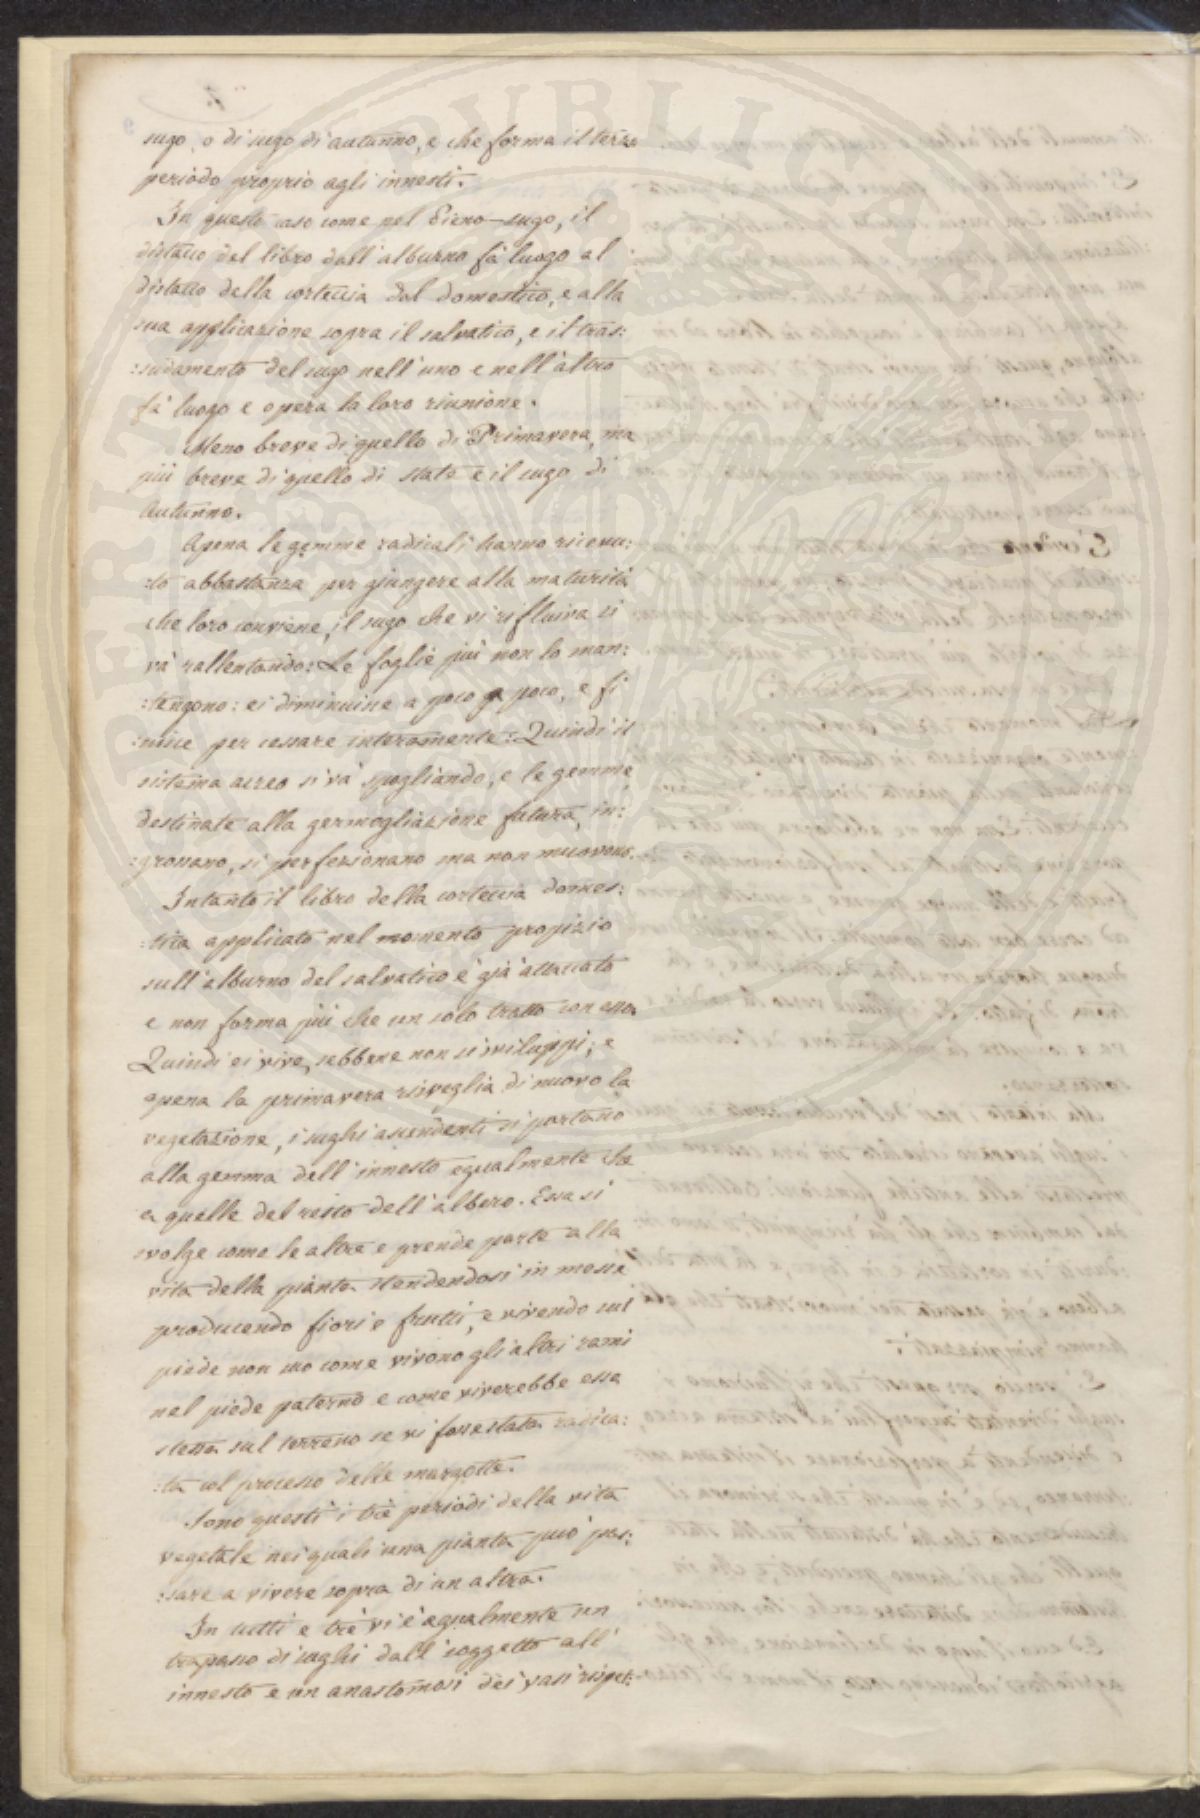 sugo, o di sugo di autunno, e che forma il terzo
periodo proprio agli innesti.
In questo caso come nel Pieno-sugo, il
distacco del libro dall'alburno fà luogo al
distacco della corteccia dal domestico, e alla
sua applicazione sopra il salvatico, e il tras:
:sudamento del sugo nell'uno e nell'altro
fà luogo e opera la loro riunione.
Meno breve di quello di Primavera, ma
più breve di quello di state è il sugo di
Autunno.
Apena le gemme radicali hanno ricevu:
:to abbastanza per giungere alla maturità
che loro conviene, il sugo che vi rifluiva si
và rallentando: Le foglie più non lo man:
:tengono: ei diminuisce a poco a poco, e fi
:nisce per cessare interamente: Quindi il
sistema aereo si và spogliando, e le gemme
destinate alla germogliazione futura, in:
:grossano, si perfezionano ma non muovono.
Intanto il libro della corteccia domes:
:tica applicato nel momento propizio
sull'alburno del salvatico è già attaccato
e non forma più che un solo tratto con esso.
Quindi ei vive, sebbene non si sviluppi; e
apena la primavera risveglia di nuovo la
vegetazione, i sughi ascendenti si portano
alla gemma dell'innesto egualmente che
a quelle del resto dell'albero. Essa si
svolge come le altre e prende parte alla
vita della pianta stendendosi in messe
producendo fiori e frutti, e vivendo sul
piede non suo come vivono gli altri rami
nel piede paterno e come viverebbe essa
stessa sul terreno se vi fosse stata radica:
:ta col processo delle margotte.
Sono questi i trè periodi della vita
vegetale nei quali una pianta può pas:
:sare a vivere sopra di un altra.
In tutti e trè vi è egualmente un
trapasso di sughi dall'soggetto all'
innesto e un anastomosi dei vasi rispet: